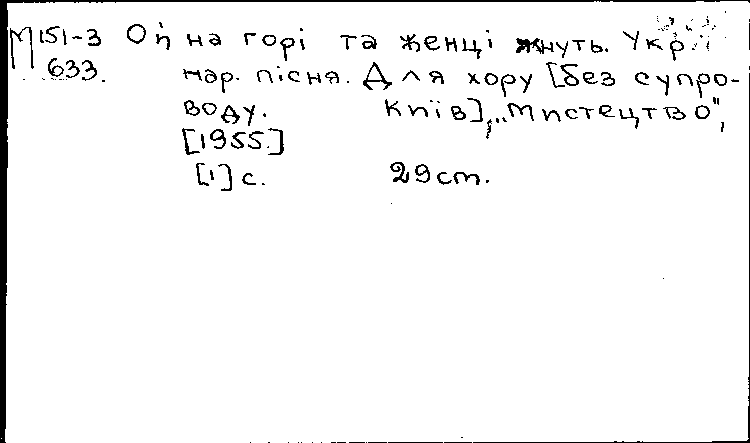 М151-3 Ой на горі та женці жнуть. Укр.
633. нар. пісня. Для хору [без супро-
воду. Київ], „Мистецтво",
[1955.]
[1] с. 29 cm.